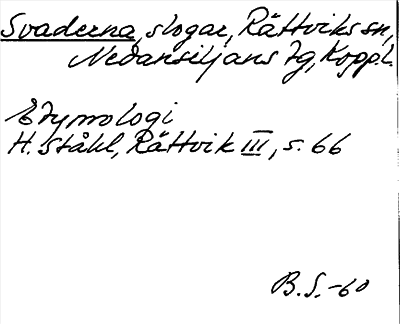 Svaderna, slogar, Rättviks sn,
Nedansiljans tg, Kopp.l.
Etymologi
H. Ståhl, Rättvik III, s. 66
B.S.-60